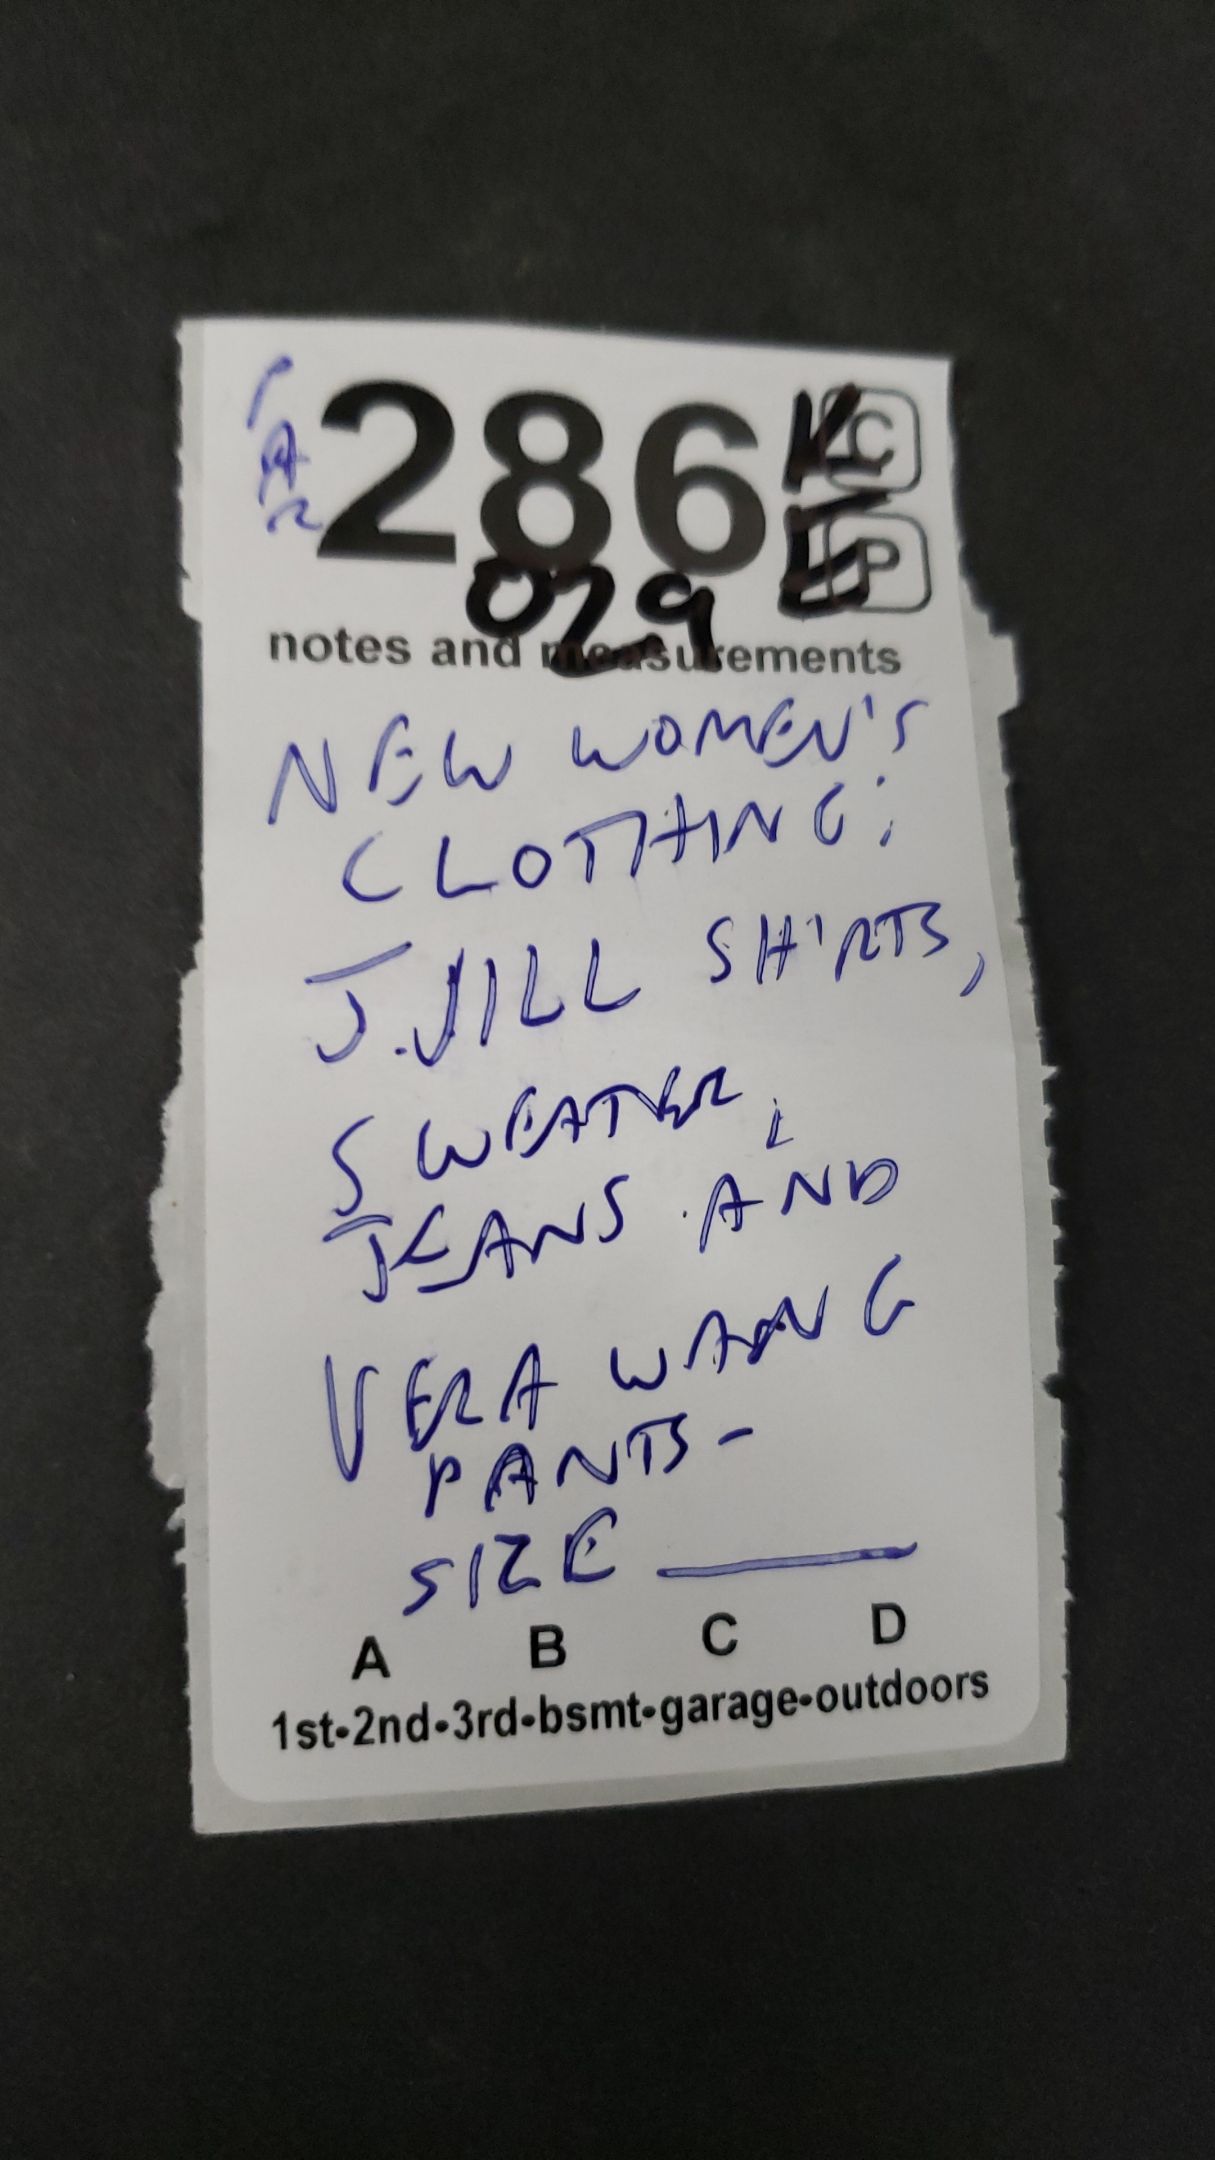 CAR
286 K C
E P
029
notes and measurements
NEW WOMEN'S
CLOTHING:
J.JILL SHIRTS,
SWEATER,
JEANS AND
VERA WANG
PANTS-
SIZE ____
A B C D
1st•2nd•3rd•bsmt•garage•outdoors